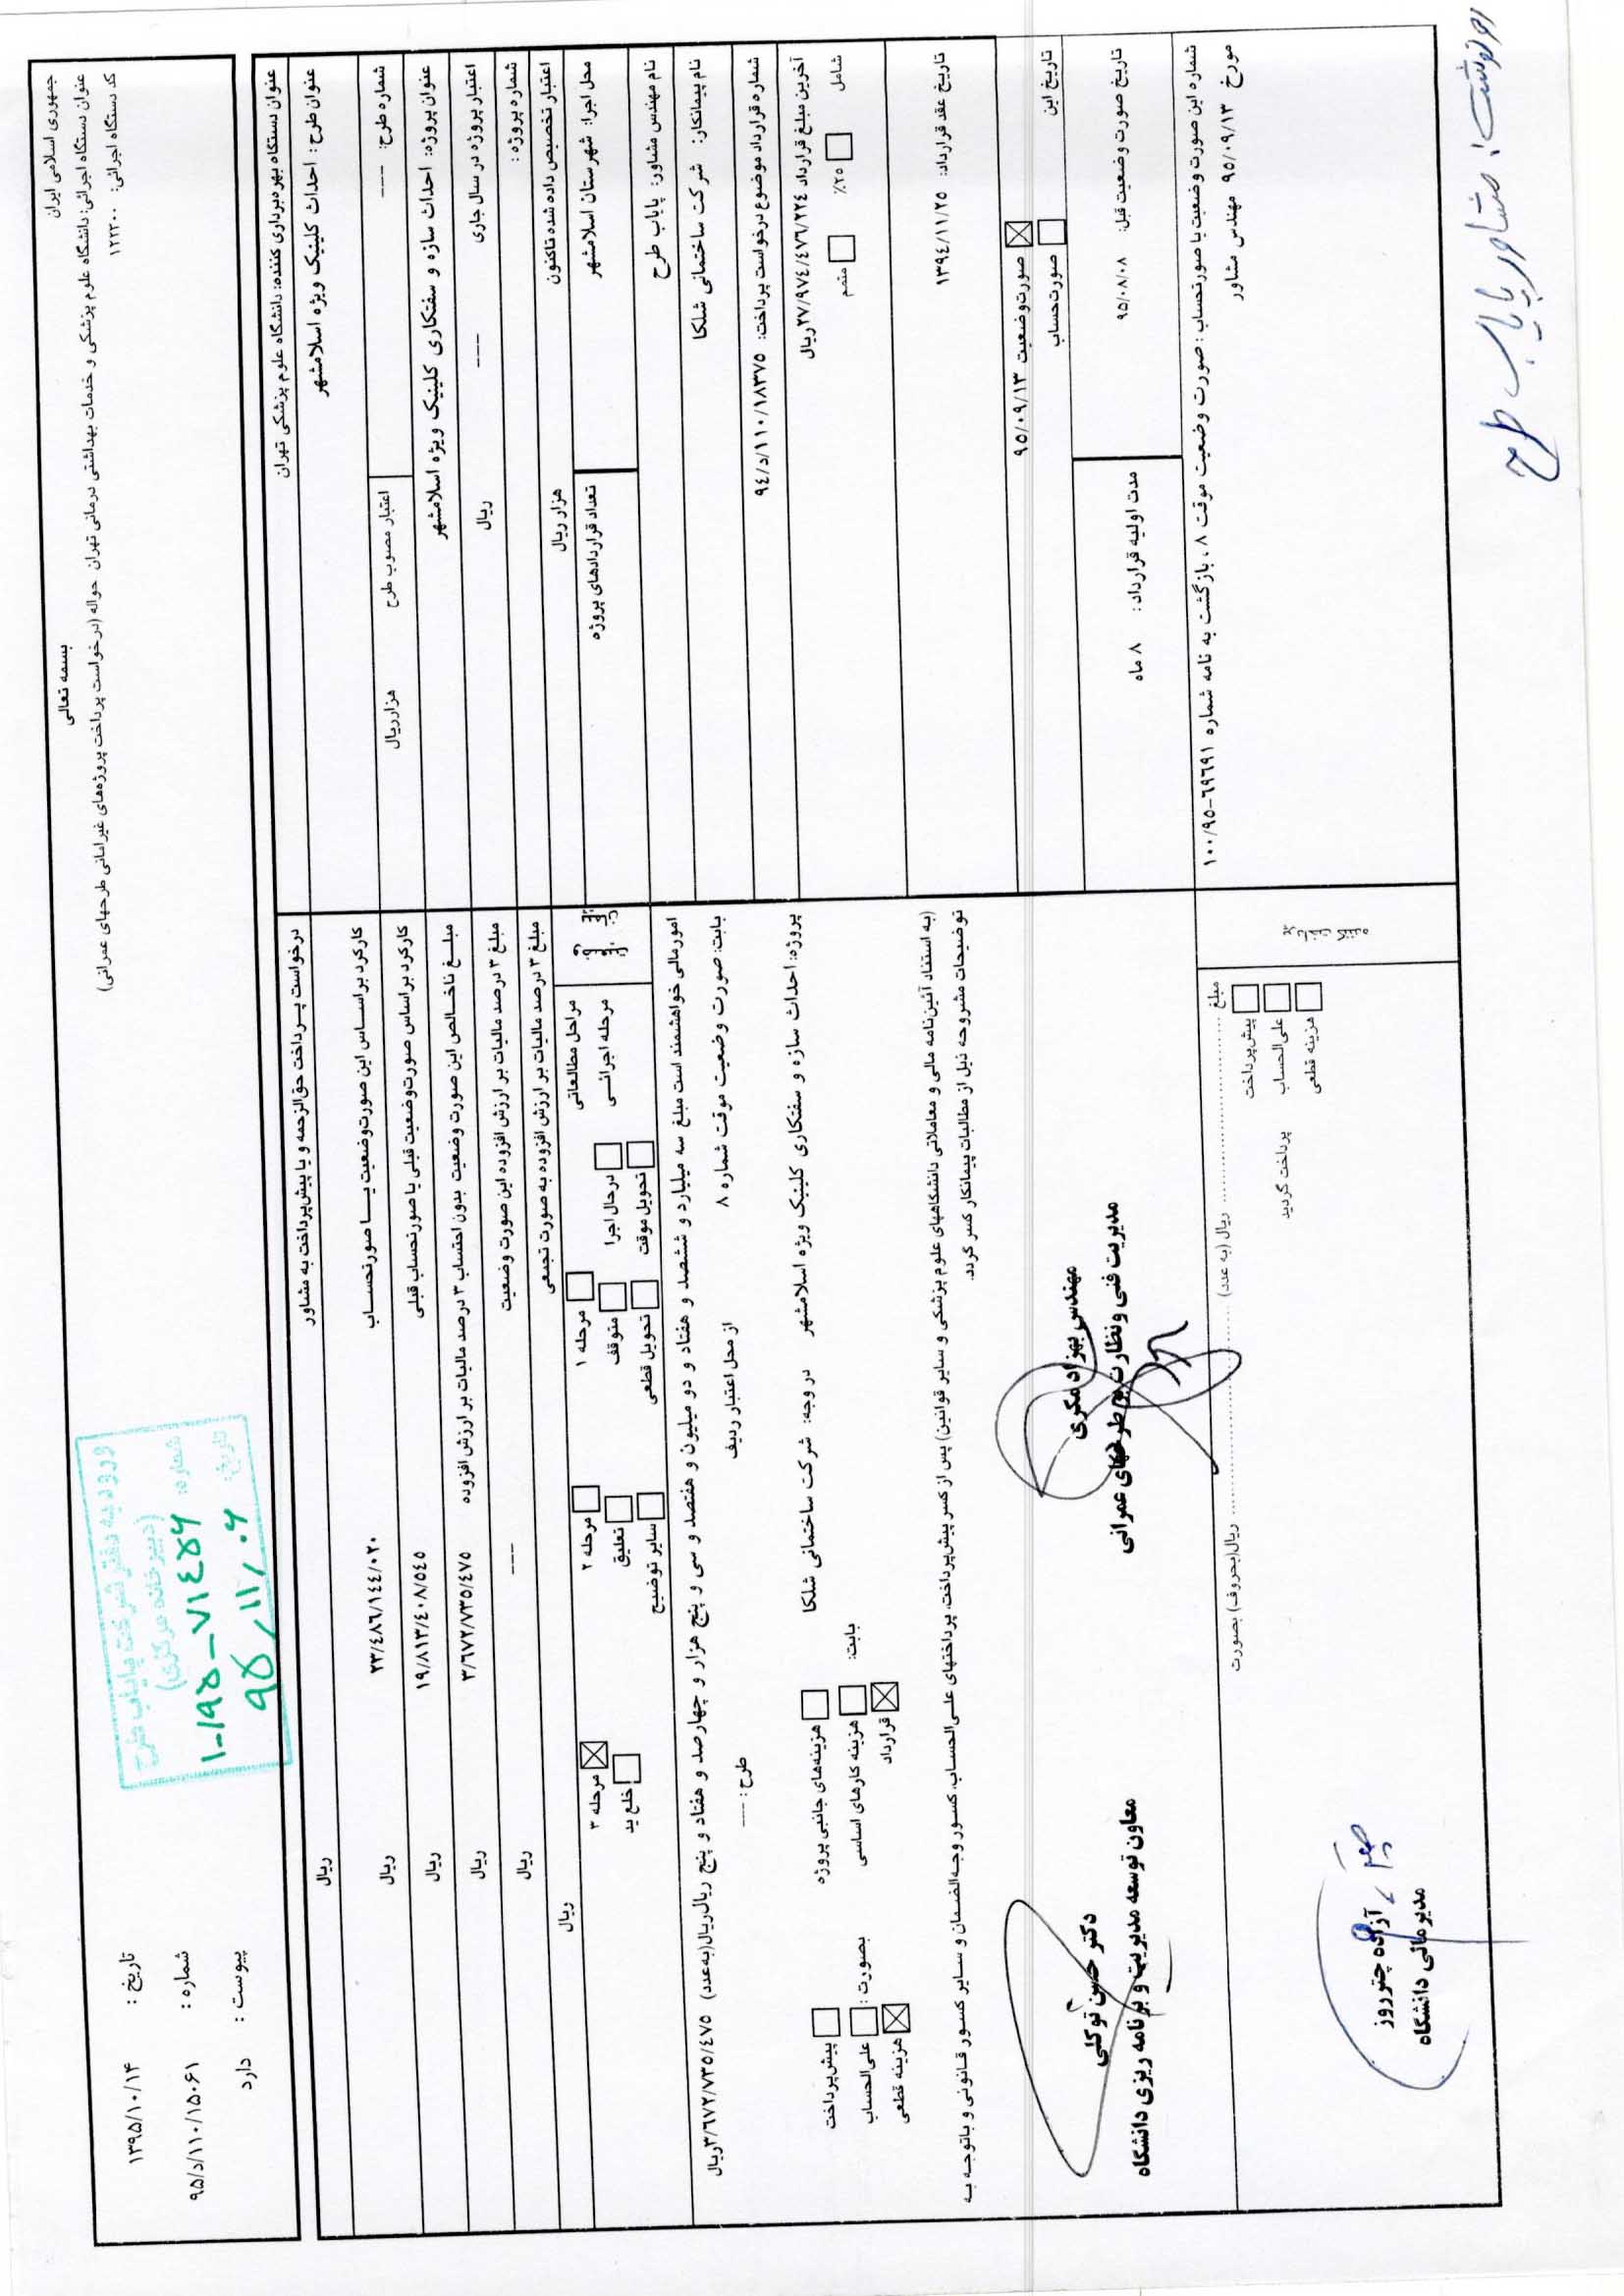 بسمه تعالی
جمهوری اسلامی ایران
عنوان دستگاه اجرائی: دانشگاه علوم پزشکی و خدمات بهداشتی درمانی تهران حواله (درخواست پرداخت پروژه‌های غیرامانی طرحهای عمرانی)
کد دستگاه اجرائی: ۱۲۲۳۰۰
تاریخ : ۱۳۹۵/۱۰/۱۴
شماره : ۹۵/د/۱۱۰/۱۵۰۶۱
پیوست : دارد
ورود به دفتر شرکت پایاب طرح
(دبیرخانه مرکزی)
شماره: ۱۰۱۹۵-۷۱۴۵۶
تاریخ: ۹۵/۱۱/۰۶
عنوان دستگاه بهره‌برداری کننده: دانشگاه علوم پزشکی تهران
عنوان طرح: احداث کلینیک ویژه اسلامشهر
شماره طرح: ---
اعتبار مصوب طرح هزارریال
عنوان پروژه: احداث سازه و سفتکاری کلینیک ویژه اسلامشهر
اعتبار پروژه در سال جاری --- ریال
شماره پروژه :
اعتبار تخصیص داده شده تاکنون هزار ریال
محل اجرا: شهرستان اسلامشهر
تعداد قراردادهای پروژه
نام مهندس مشاور: پایاب طرح
نام پیمانکار: شرکت ساختمانی شلکا
شماره قرارداد موضوع درخواست پرداخت: ۹۴/د/۱۱۰/۱۸۳۷۵
آخرین مبلغ قرارداد ۲۷/۹۷۴/۴۷۶/۲۲۴ریال
شامل ۲۵٪ متمم
تاریخ عقد قرارداد: ۱۳۹۴/۱۱/۲۵
تاریخ این صورت‌وضعیت ۹۵/۰۹/۱۳
صورت‌حساب
تاریخ صورت وضعیت قبل: ۹۵/۰۸/۰۸
مدت اولیه قرارداد: ۸ ماه
شماره این صورت وضعیت یا صورتحساب : صورت وضعیت موقت ۸ ، بازگشت به نامه شماره ۱۰۰/۹۵-۶۹۶۹۱
مورخ ۹۵/۰۹/۱۳ مهندس مشاور
درخواست پرداخت حق‌الزحمه و یا پیش‌پرداخت به مشاور ریال
کارکرد براساس این صورت‌وضعیت یا صورتحساب ۲۳/۴۸۶/۱۴۴/۰۲۰ ریال
کارکرد براساس صورت‌وضعیت قبلی یا صورتحساب قبلی ۱۹/۸۱۳/۴۰۸/۵۴۵ ریال
مبلغ ناخالص این صورت وضعیت بدون احتساب ۳ درصد مالیات بر ارزش افزوده ۳/۶۷۲/۷۳۵/۴۷۵ ریال
مبلغ ۳ درصد مالیات بر ارزش افزوده این صورت وضعیت --- ریال
مبلغ ۳ درصد مالیات بر ارزش افزوده به صورت تجمعی ریال
مراحل مطالعاتی مرحله ۱ مرحله ۲ مرحله ۳
مرحله اجرائی درحال اجرا متوقف تعلیق خلع ید
تحویل موقت تحویل قطعی سایر توضیح
امورمالی خواهشمند است مبلغ سه میلیارد و ششصد و هفتاد و دو میلیون و هفتصد و سی و پنج هزار و چهارصد و هفتاد و پنج ریال‌ریال(به‌عدد) ۳/۶۷۲/۷۳۵/۴۷۵ریال
بابت: صورت وضعیت موقت شماره ۸ از محل اعتبار ردیف طرح: ---
پروژه: احداث سازه و سفتکاری کلینیک ویژه اسلامشهر در وجه: شرکت ساختمانی شلکا
بابت: هزینه‌های جانبی پروژه هزینه کارهای اساسی قرارداد
بصورت: پیش‌پرداخت علی‌الحساب هزینه قطعی
(به استناد آئین‌نامه مالی و معاملاتی دانشگاههای علوم پزشکی و سایر قوانین) پس از کسر پیش‌پرداخت، پرداختهای علی‌الحساب، کسور وجه‌الضمان و سایر کسور قانونی و باتوجه به
توضیحات مشروحه ذیل از مطالبات پیمانکار کسر گردد.
مهندس بهزاد مکری
مدیریت فنی و نظارت بر طرحهای عمرانی
دکتر حسن توکلی
معاون توسعه مدیریت و برنامه ریزی دانشگاه
مبلغ .......... ریال (به عدد) .......... ریال(بحروف) بصورت
پیش‌پرداخت
علی‌الحساب پرداخت گردید
هزینه قطعی
آزاده چتر‌روز
مدیر مالی دانشگاه
رونوشت: مشاور پایاب طرح